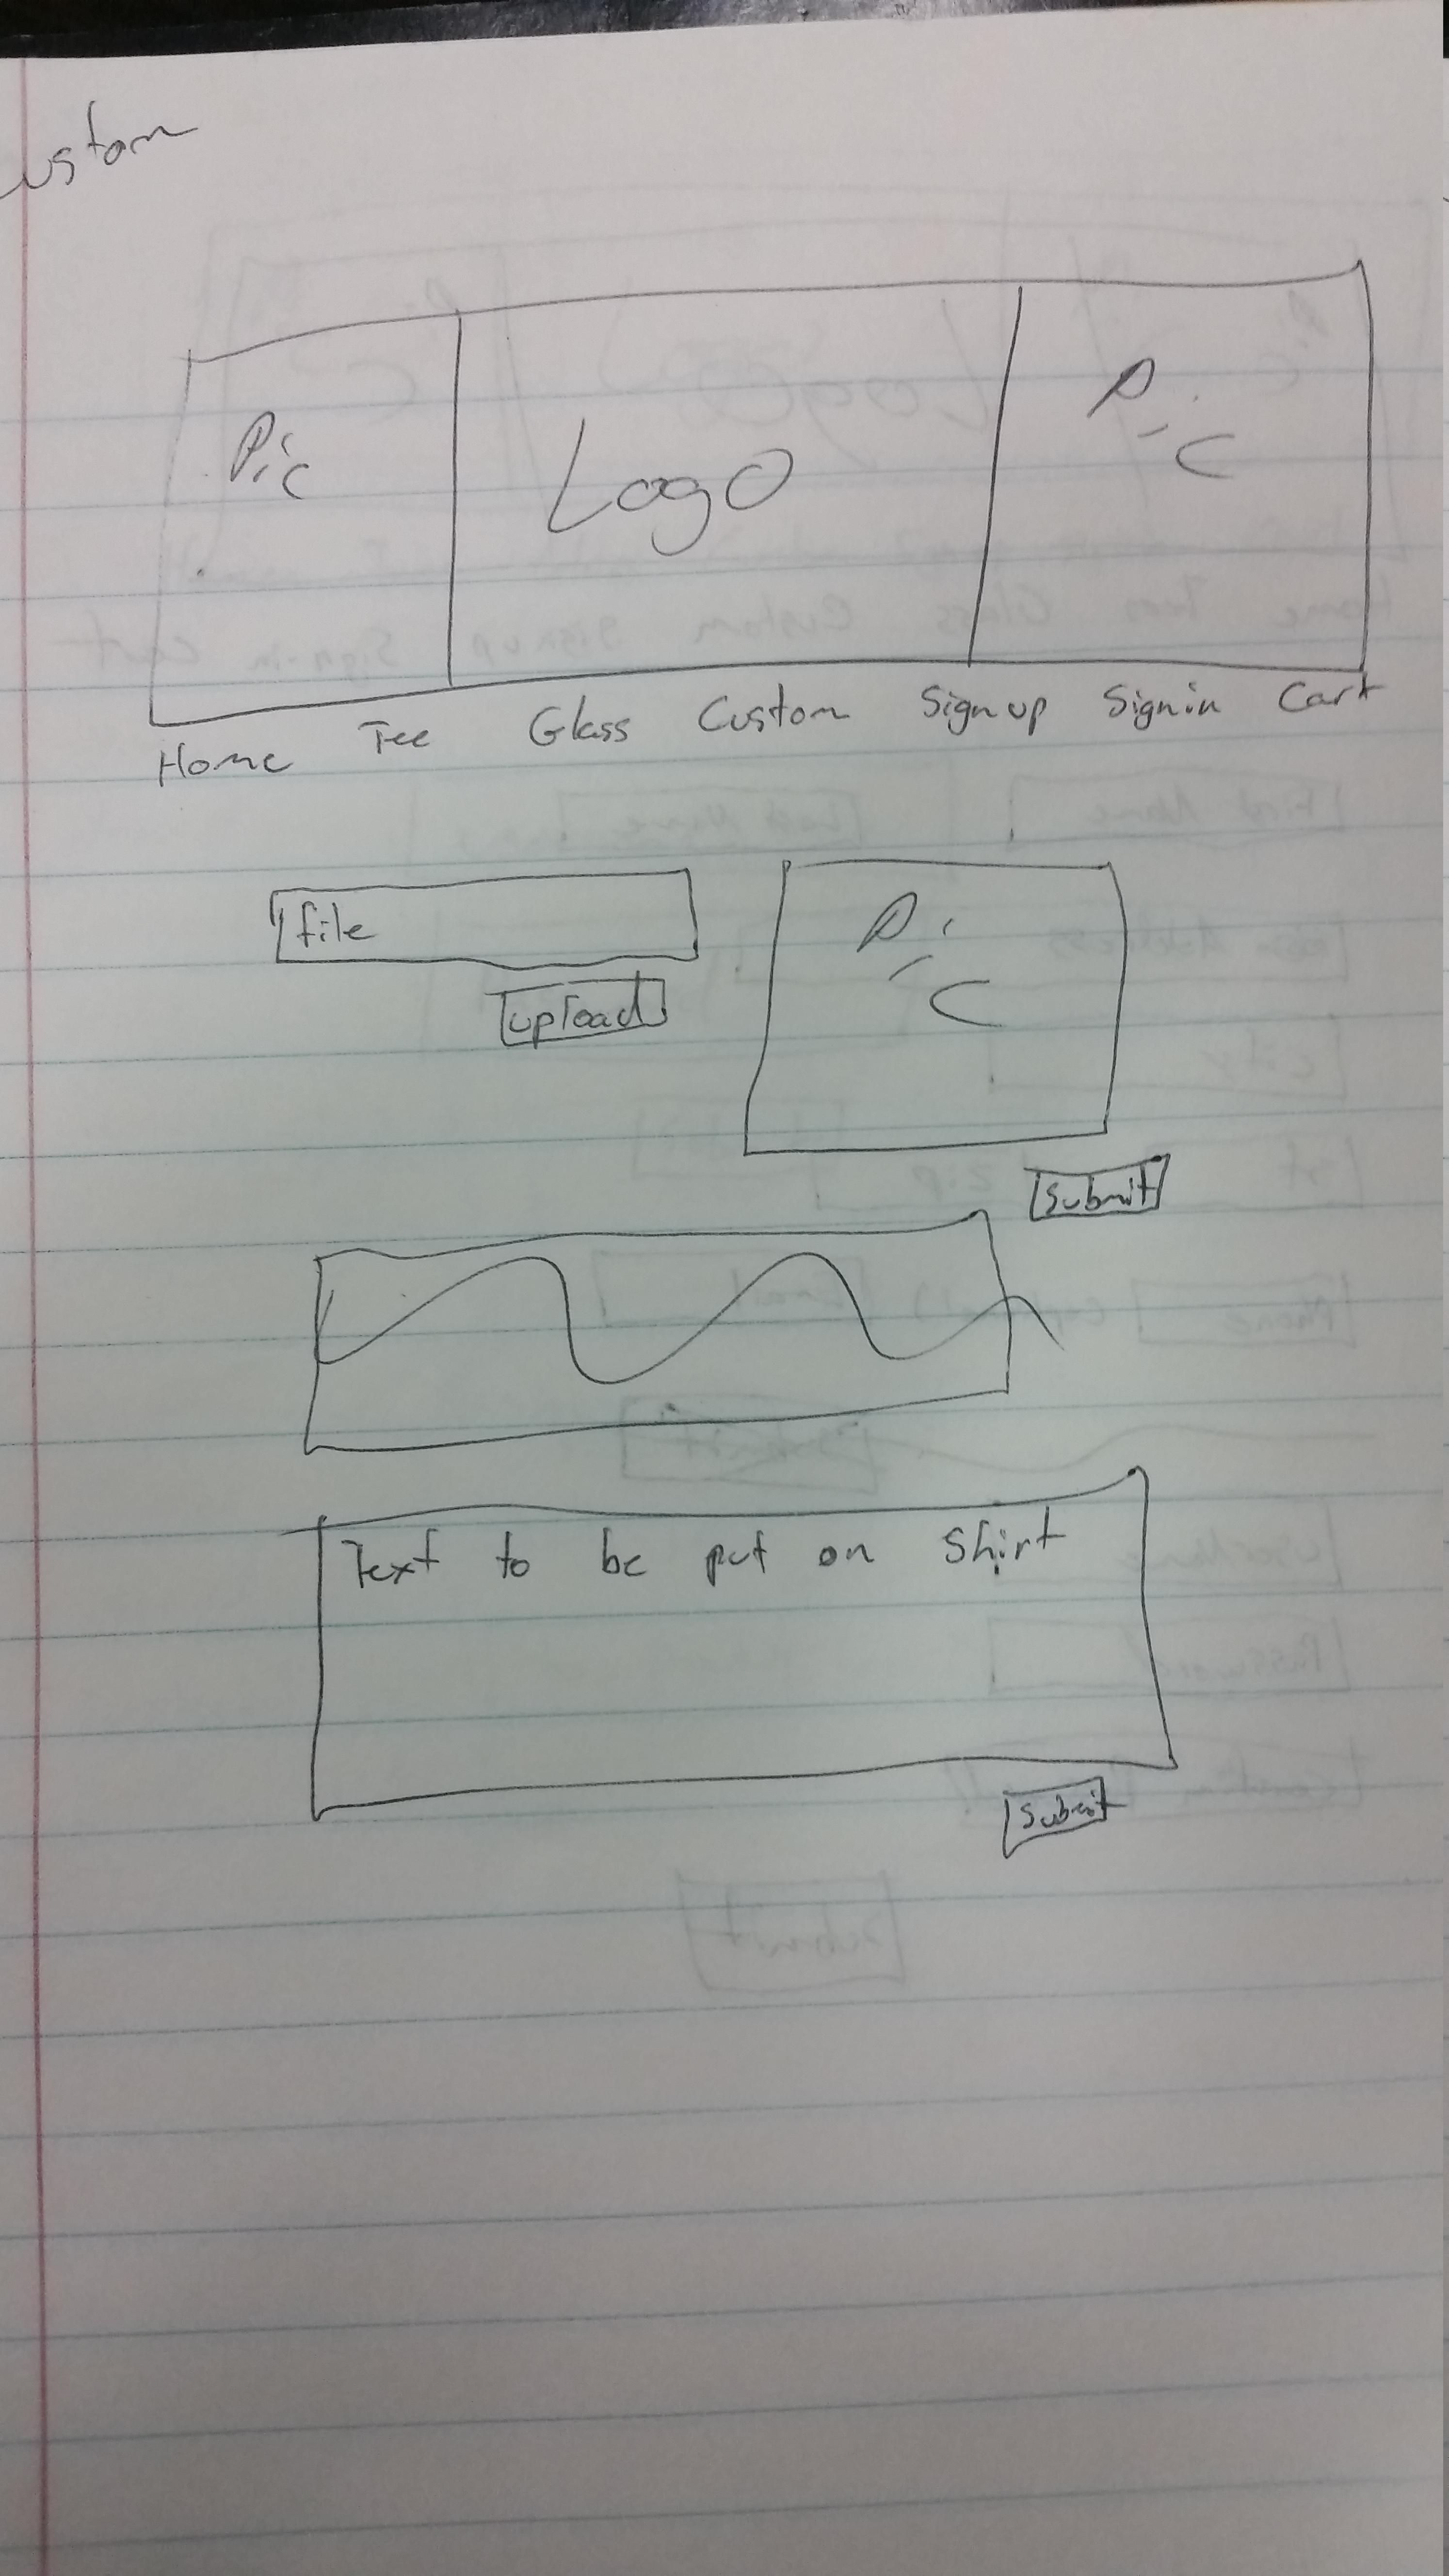 Custom
Pic Logo Pic
Home Tee Glass Custom Signup Signin Cart
file
Pic
upload
Submit
Text to be put on Shirt
Submit